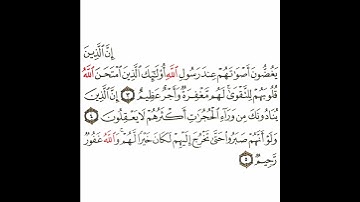 إِنَّ ٱلَّذِينَ
يَغُضُّونَ أَصْوَٰتَهُمْ عِندَ رَسُولِ ٱللَّهِ أُو۟لَٰٓئِكَ ٱلَّذِينَ ٱمْتَحَنَ ٱللَّهُ
قُلُوبَهُمْ لِلتَّقْوَىٰ ۚ لَهُم مَّغْفِرَةٌ وَأَجْرٌ عَظِيمٌ ٣ إِنَّ ٱلَّذِينَ
يُنَادُونَكَ مِن وَرَآءِ ٱلْحُجُرَٰتِ أَكْثَرُهُمْ لَا يَعْقِلُونَ ٤
وَلَوْ أَنَّهُمْ صَبَرُوا۟ حَتَّىٰ تَخْرُجَ إِلَيْهِمْ لَكَانَ خَيْرًا لَّهُمْ ۚ وَٱللَّهُ غَفُورٌ
رَّحِيمٌ ٥